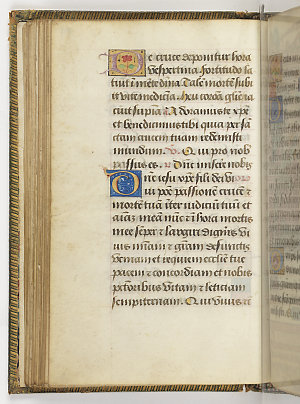 De cruce deponitur hora
vespertina fortitudo la
tuit in mente divina Talem mortem subi
it vite medicina heu corona glorie ia
cuit supina Adoramus te xpe
et benedicimus tibi quia per san
ctam crucem tuam redemisti
mundum Qui pro nob
passus es Dne miserere nobis
Domine iesu xpe fili dei vivi
pone passionem crucem et
mortem tuam inter iudicium tuum et
animam meam nunc et in hora mortis
mee semper et largiri digneris vi
vis misericordiam et graciam defunctis
veniam et requiem ecclesie tue
pacem et concordiam et nobis
peccatoribus vitam et leticiam
sempiternam Qui vivis et